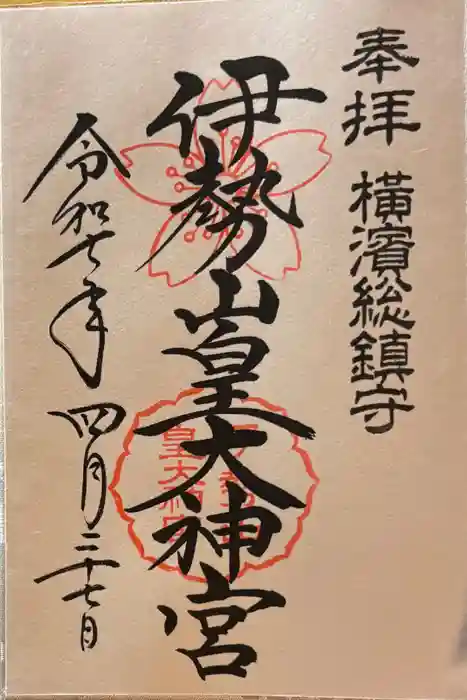 奉拝 横濱総鎮守
伊勢山皇大神宮
令和七年四月二十七日